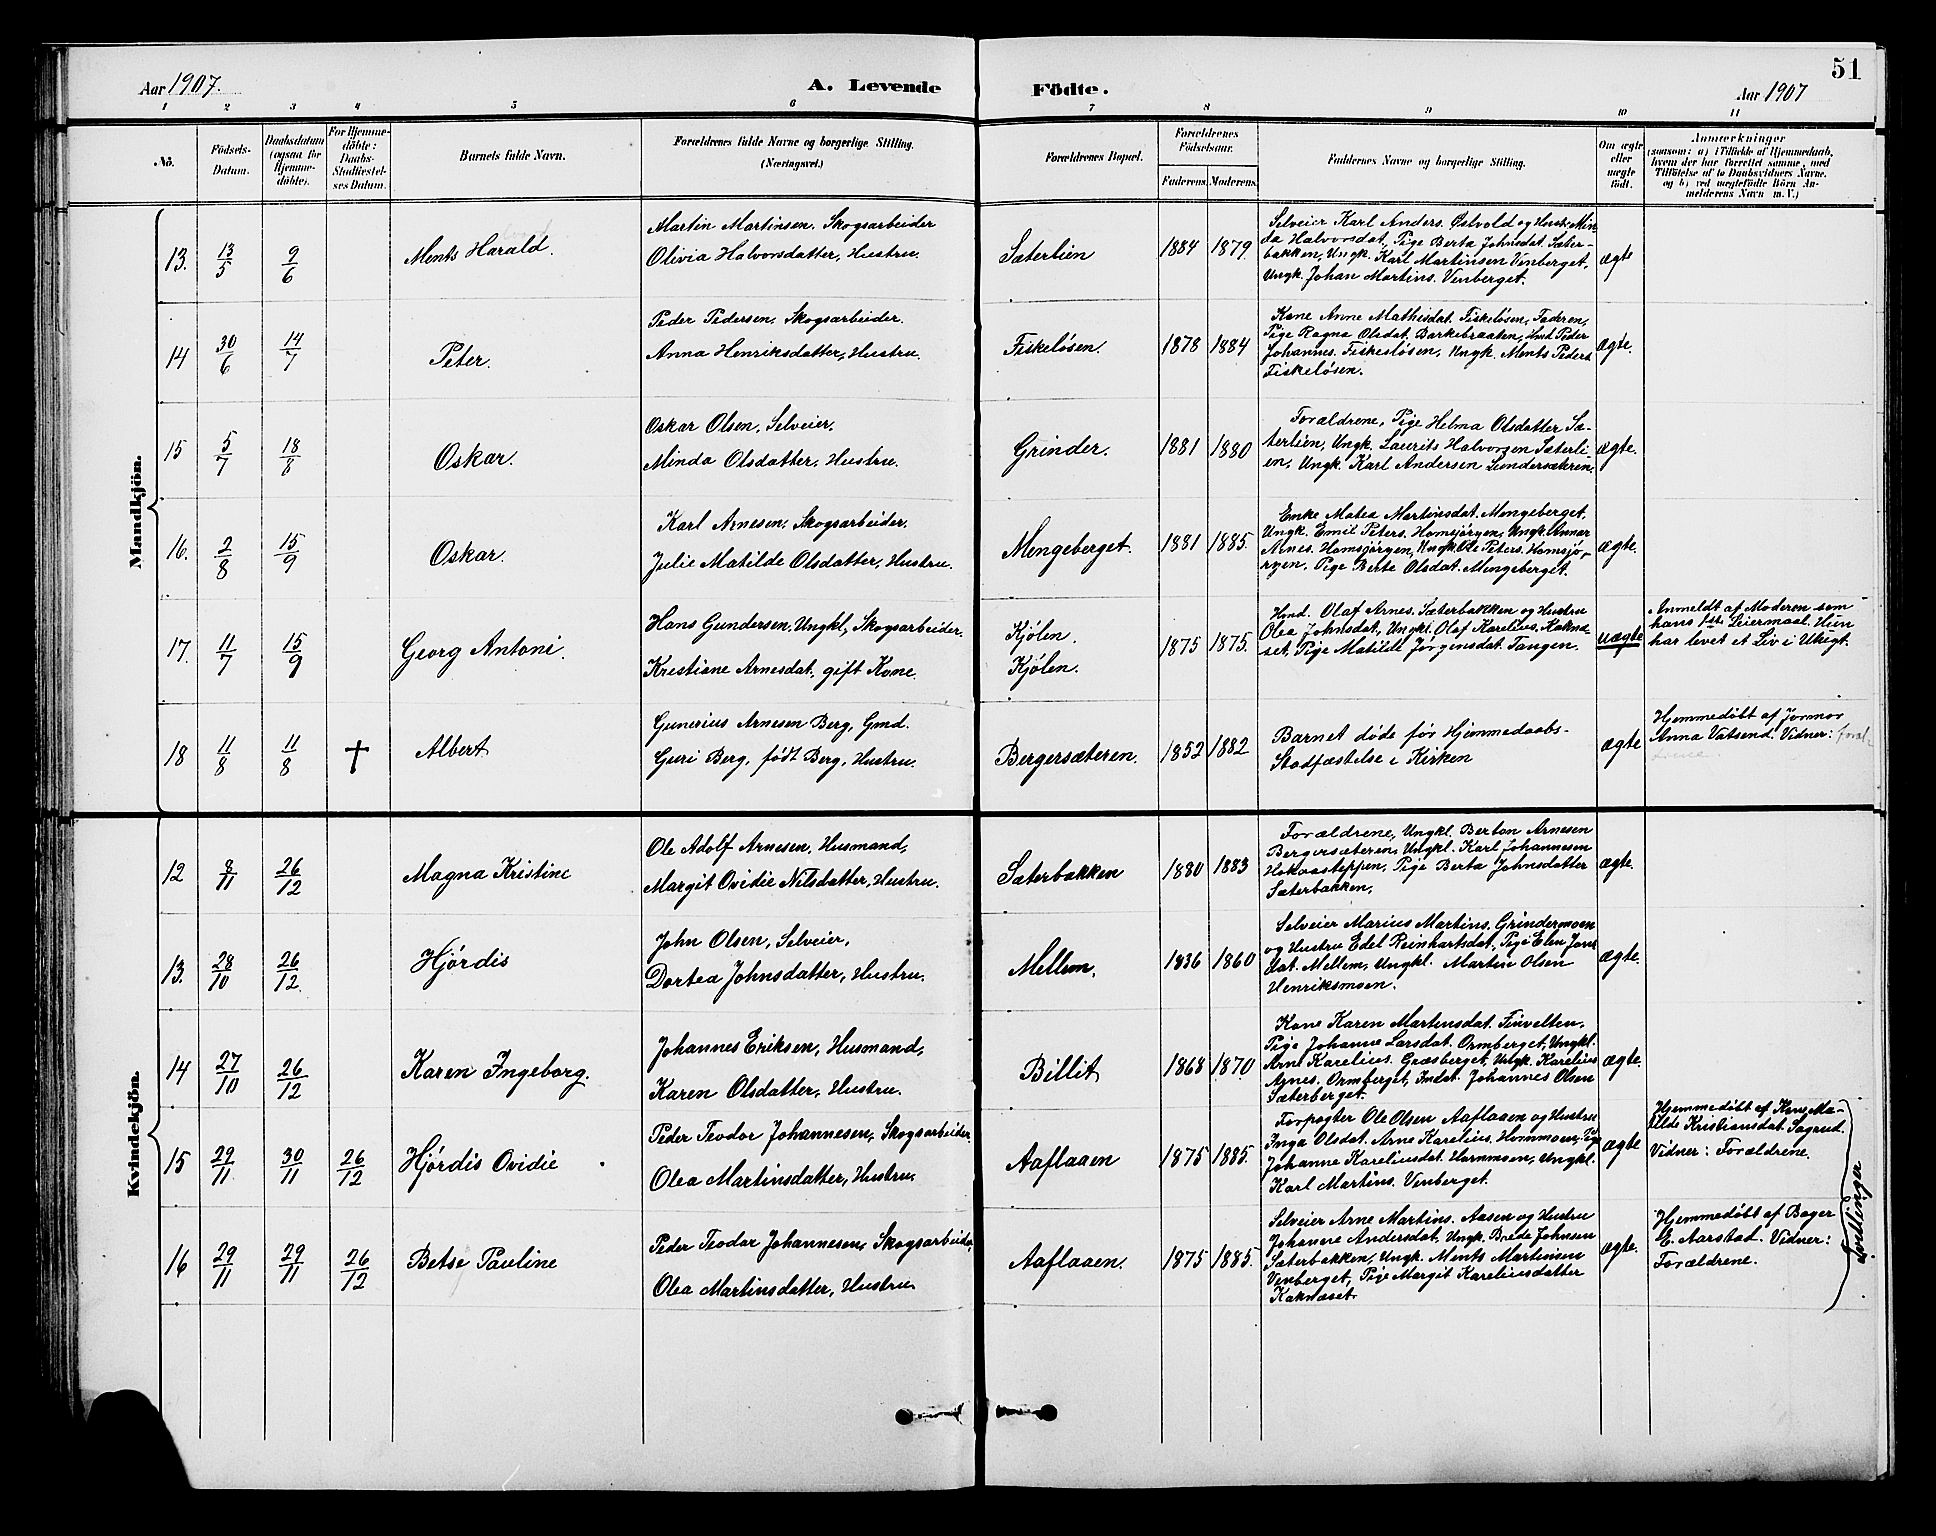 Aar 1907. A. Levende Födte. Aar 1907 51
1 2 3 4 5 6 7 8 9 10 11
No.
Födsels-Datum.
Daabsdatum (ogsaa for Hjemme-döbte).
For Hjemme-döbte: Daabs-Stadfæstel-ses Datum.
Barnets fulde Navn.
Forældrenes fulde Navne og borgerlige Stilling.
(Næringsvei.)
Forældrenes Bopæl.
Forældrenes Födselsaar.
Faderens. Moderens.
Faddernes Navne og borgerlige Stilling.
Om ægte eller uægte födt.
Anmærkninger
(saasom: a) i Tilfælde af Hjemmedaab,
hvem der har forrettet samme, med
Tilföielse af to Daabsvidners Navne.
og b) ved uægtefödte Börn An-
melderens Navn m. V.)
Mandkjön.
13. 13/5 9/6 Ments Harald.
Martin Martinsen, Skogsarbeider
Olivia Halvorsdatter, Hustru.
Sæterlien 1884 1879.
Selveier Karl Anders. Østvold og Hustru Min
da Halvorsdat, Pige Berta Johnsdat. Sæter-
bakken, Ungk. Karl Martinsen Venberget,
Ungk. Johan Martins. Venberget.
ægte
14 30/6 14/7 Peter.
Peder Pedersen, Skogsarbeider.
Anna Henriksdatter, Hustru.
Fiskeløsen. 1878 1884
Kone Anne Mathisdat. Fiskeløsen, Faderen,
Pige Ragna Olsdat. Barkebraaten, Hmd Peder
Johannes. Fiskesløsen, Ungk. Ments Peders.
Fiskeløsen.
ægte.
15 5/7 18/8 Oskar.
Oskar Olsen, Selveier.
Minda Olsdatter, Hustru.
Grinder. 1881 1880
Forældrene, Pige Helma Olsdatter Sæ-
terlien, Ungk. Laurits Halvorsen Sæterli-
en, Ungk. Karl Andersen Sundersækren.
ægte.
16. 2/8 15/9 Oskar.
Karl Arnesen, Skogsarbeider.
Julie Matilde Olsdatter, Hustru.
Mengeberget. 1881 1885.
Enke Matea Martinsdat. Mengeberget,
Ungk. Emil Peters. Homsjøryen, Ungk. Annar
Arnes. Homsjøryen, Ungk. Ole Peters. Homsjø-
ryen, Pige Berte Olsdat. Mengeberget.
ægte.
17. 11/7 15/9 Georg Antoni.
Hans Gundersen, Ungkl, Skogsarbeider.
Kristiane Arnesdat. gift Kone.
Kjølen.
Kjølen.
1875 1875.
Hmd. Olaf Arnes. Sæterbakken og Hustru
Olea Johnsdat, Ungkl. Olaf Karelius. Kakna-
set, Pige Matilde Jørgensdat. Tangen.
uægte
Anmeldt af Moderen som
hans 1ste Leiermaal. Hun
har levet et Liv i Utugt.
18 11/8 11/8 † Albert
Gunerius Arnesen Berg, Gmd.
Guri Berg, født Berg, Hustru.
Bergersæteren. 1852 1882
Barnet døde før Hjemmedaabs-
Stadfæstelse i Kirken
ægte
Hjemmedøbt af Jormor
Anna Vatsend. Vidner: foræl-
drene
Kvindekjön.
12 8/11 26/12 Magna Kristine
Ole Adolf Arnesen, Husmand,
Margit Ovidie Nilsdatter, Hustru.
Sæterbakken 1880 1883
Forældrene, Ungkl. Berton Arnesen
Bergersæteren, Ungkl. Karl Johannesen
Hokaasteppen, Pige Berta Johnsdatter
Sæterbakken,
ægte.
13. 28/10 26/12. Hjørdis
John Olsen, Selveier,
Dortea Johnsdatter, Hustru.
Mellem. 1836 1860
Selveier Marius Martins. Grindermoen
og Hustru Edel Reinhartsdat, Pige Elen Jons
dat. Mellem, Ungkl. Martin Olsen
Henriksmoen.
ægte.
14 27/10 26/12 Karen Ingeborg.
Johannes Eriksen, Husmand,
Karen Olsdatter, Hustru.
Billit 1868 1870
Kone Karen Martinsdat. Finvelten,
Pige Johanne Larsdat. Ormberget, Ungkl.
Arne Karelius. Graasberget, Ungk. Karelius
Arnes. Ormberget, Indst. Johannes Olsen
Sæterberget.
ægte.
15 29/11 30/11 26/12 Hjørdis Ovidie
Peder Teodor Johannesen, Skogsarbeider.
Olea Martinsdatter, Hustru.
Aaflaaen 1875 1885.
Forpagter Ole Olsen Aaflaaen og Hustru
Inga Olsdat. Arne Karelius. Hommoen, Pige
Johanne Kareliusdat. Hommoen, Ungkl.
Karl Martins. Venberget.
ægte
Hjemmedøbt af Kone Ma-
tilde Kristiansdat. Sagrud.
Vidner: Forældrene.
16 29/11 29/11 26/12 Betse Pauline
Peder Teodor Johannesen, Skogsarbeider,
Olea Martinsdatter, Hustru.
Aaflaaen. 1875 1885.
Selveier Arne Martins. Aasen og Hustru
Johanne Andersdat, Ungk. Brede Johnsen
Sæterbakken, Ungk. Ments Martinsen
Venberget, Pige Margit Kareliusdatter
Kaknæset.
ægte.
Hjemmedøbt af Bager
E. Aarstad. Vidner:
Forældrene.
Tvillinger